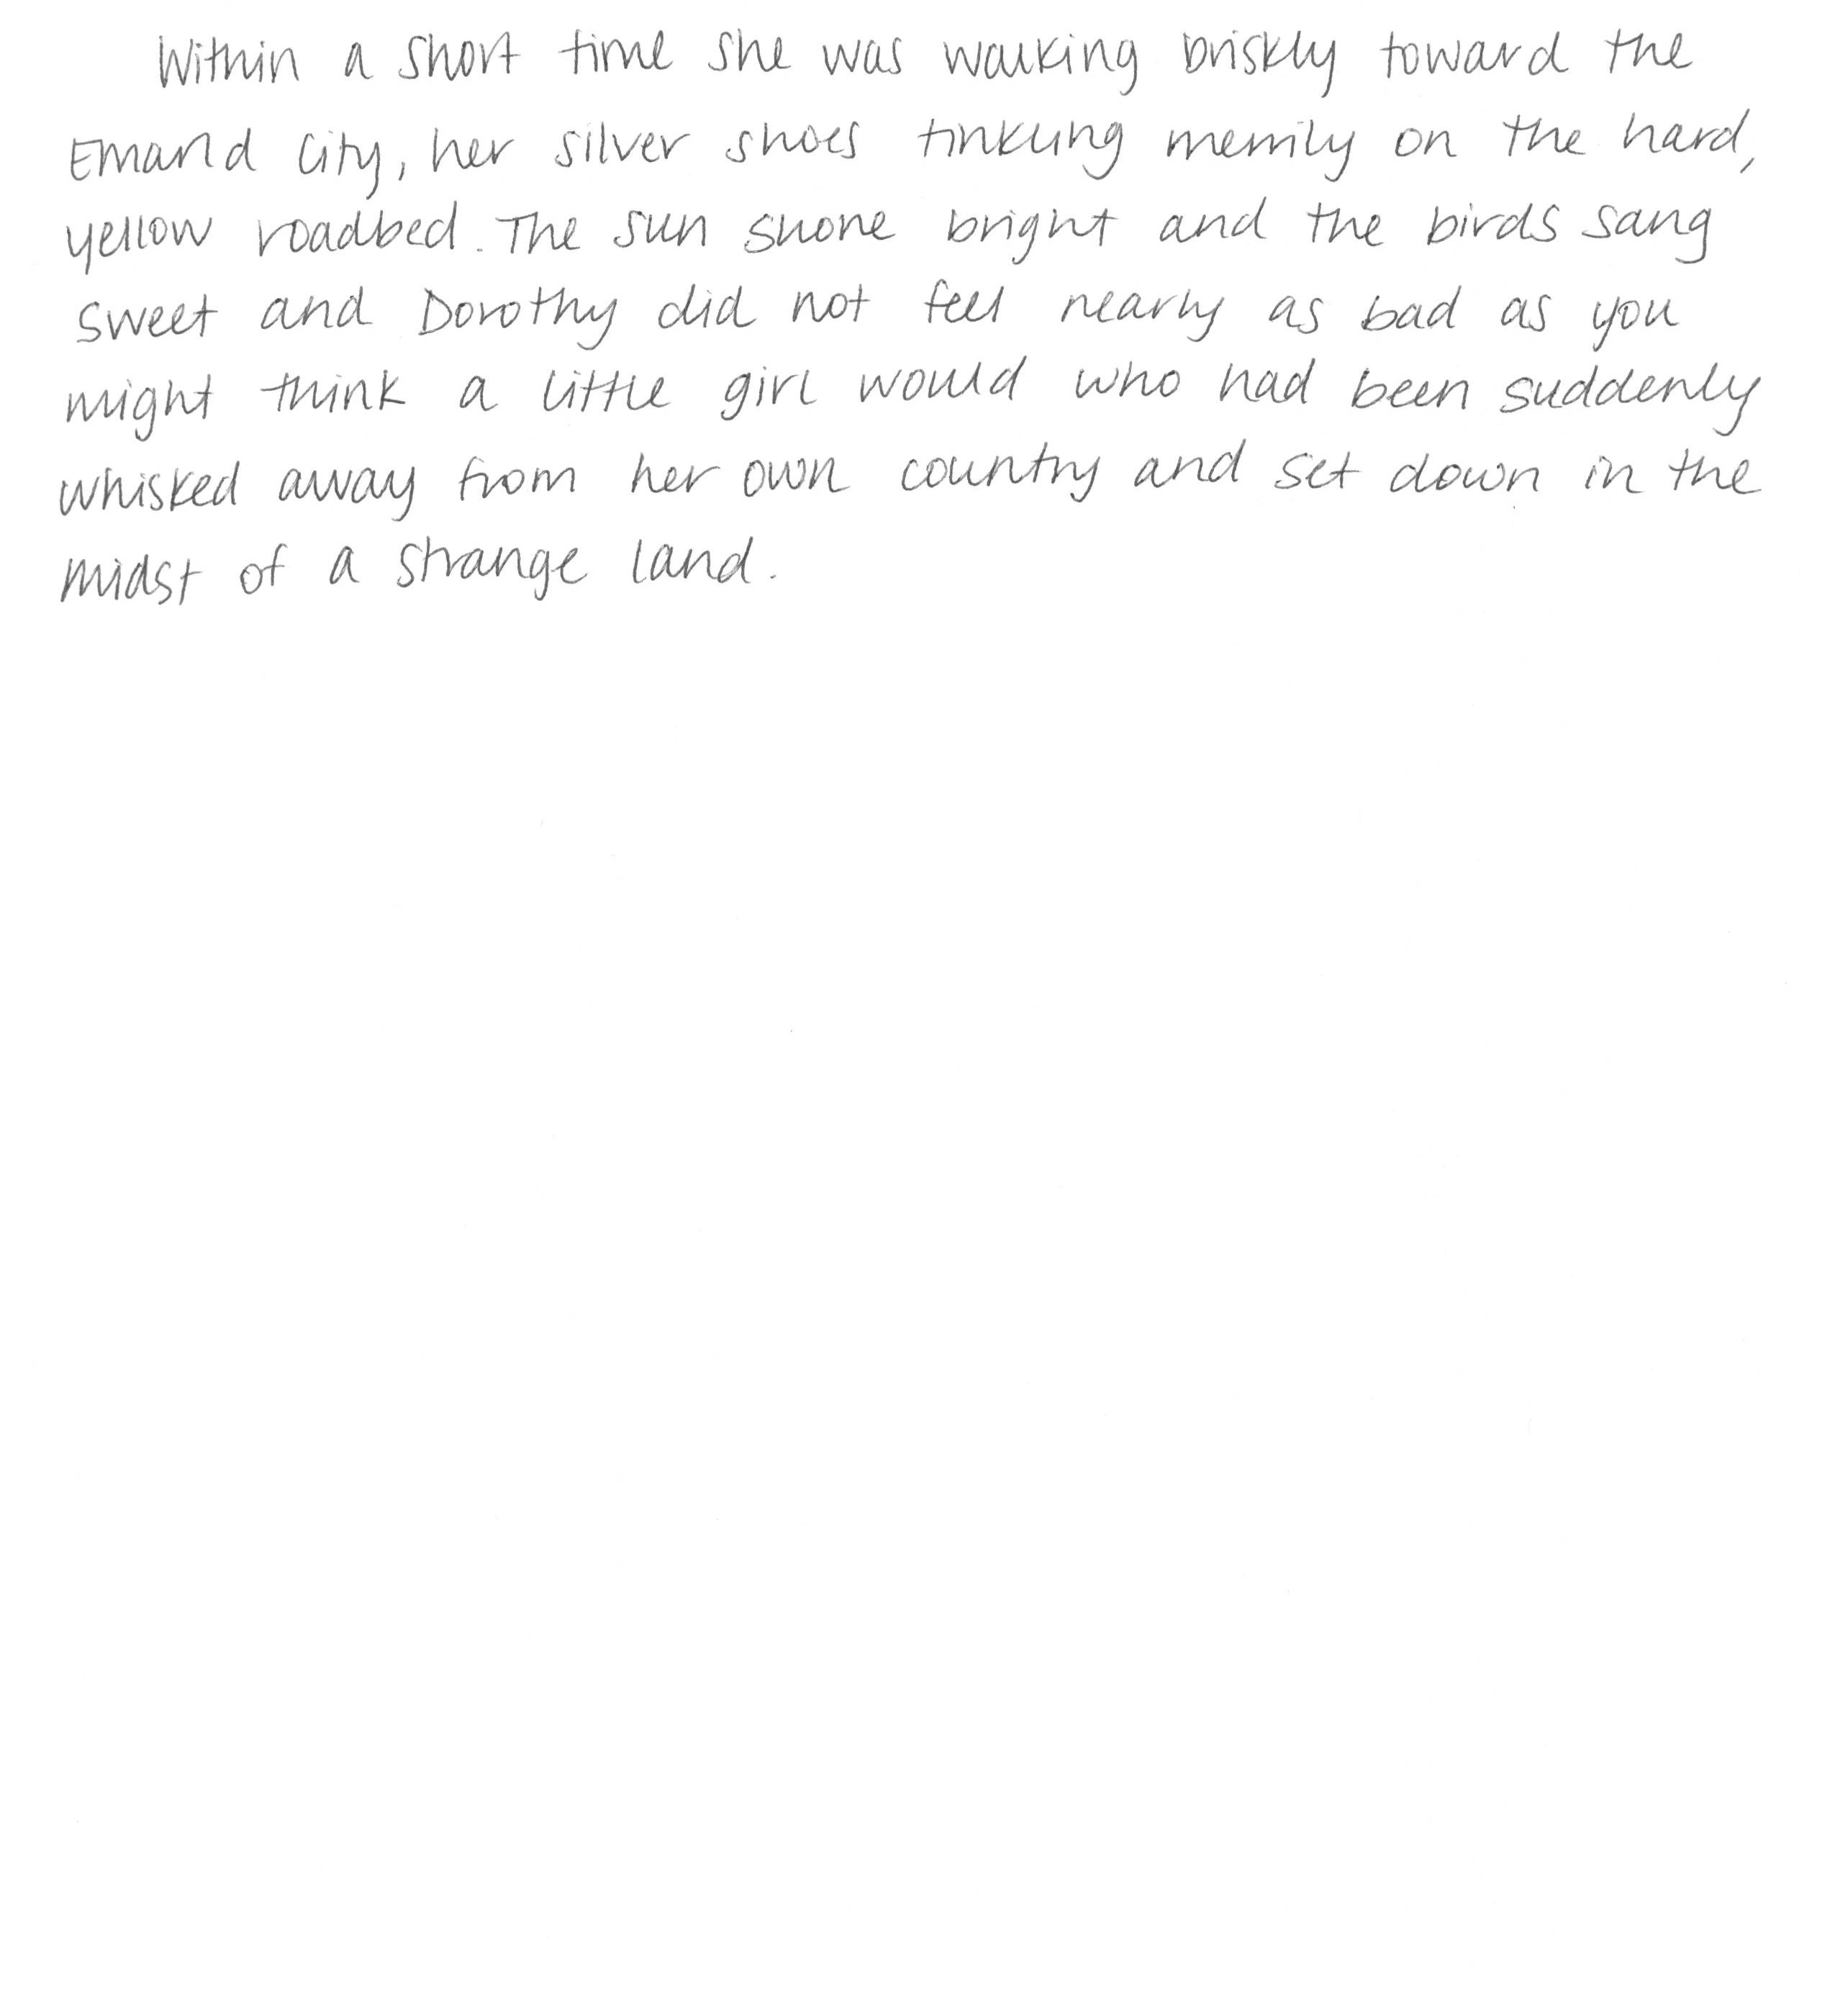 Within a short time she was walking briskly toward the
Emarld City, her silver shoes tinkling merrily on the hard,
yellow roadbed. The sun shone bright and the birds sang
sweet and Dorothy did not feel nearly as bad as you
might think a little girl would who had been suddenly
whisked away from her own country and set down in the
midst of a strange land.